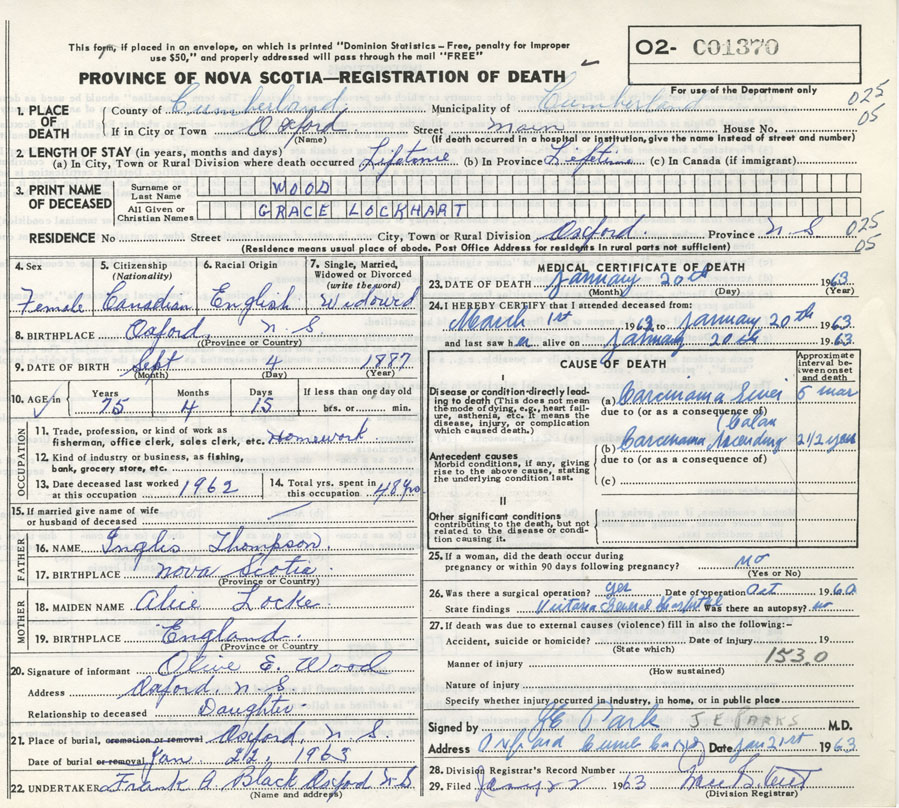 This form, if placed in an envelope, on which is printed "Dominion Statistics – Free, penalty for improper
use $50," and properly addressed will pass through the mail "FREE"
O2- C01370
PROVINCE OF NOVA SCOTIA—REGISTRATION OF DEATH
For use of the Department only
025
05
1. PLACE OF DEATH
County of Cumberland Municipality of Cumberland
If in City or Town Oxford Street Main House No.
(Name) (If death occurred in a hospital or institution, give the name instead of street and number)
2. LENGTH OF STAY (in years, months and days)
(a) In City, Town or Rural Division where death occurred Lifetime (b) In Province Lifetime (c) In Canada (if immigrant)
3. PRINT NAME OF DECEASED
Surname or Last Name WOOD
All Given or Christian Names GRACE LOCKHART
RESIDENCE No Street City, Town or Rural Division Oxford Province N.S
025
05
(Residence means usual place of abode. Post Office Address for residents in rural parts not sufficient)
4. Sex
Female
5. Citizenship (Nationality)
Canadian
6. Racial Origin
English
7. Single, Married, Widowed or Divorced (write the word)
Widowed
8. BIRTHPLACE Oxford, N.S.
(Province or Country)
9. DATE OF BIRTH Sept 4 1887
(Month) (Day) (Year)
10. AGE in Years Months Days If less than one day old
75 4 15 hrs. or min.
OCCUPATION
11. Trade, profession, or kind of work as
fisherman, office clerk, sales clerk, etc. Homework
12. Kind of industry or business, as fishing,
bank, grocery store, etc.
13. Date deceased last worked at this occupation 1962
14. Total yrs. spent in this occupation 48 yrs
15. If married give name of wife
or husband of deceased
FATHER
16. NAME Inglis Thompson
17. BIRTHPLACE Nova Scotia
(Province or Country)
MOTHER
18. MAIDEN NAME Alice Locke
19. BIRTHPLACE England
(Province or Country
20. Signature of informant Olive E. Wood
Address Oxford, N.S
Relationship to deceased Daughter
21. Place of burial, cremation or removal Oxford, N.S
Date of burial or removal Jan. 22, 1963
22. UNDERTAKER Frank A Black Oxford N S
(Name and address)
MEDICAL CERTIFICATE OF DEATH
23. DATE OF DEATH January 20th 1963
(Month) (Day) (Year)
24. I HEREBY CERTIFY that I attended deceased from:
March 1st 1962 to January 20th 1963
and last saw her alive on January 20th 1963
CAUSE OF DEATH
Approximate interval between onset and death
I
Disease or condition directly leading to death (This does not mean the mode of dying, e.g., heart failure, asthenia, etc. It means the disease, injury, or complication which caused death.)
(a) Carcinoma Liver 6 mos
due to (or as a consequence of)
Antecedent causes
Morbid conditions, if any, giving rise to the above cause, stating the underlying condition last.
(b) Carcinoma Ascending Colon 2 1/2 years
due to (or as a consequence of)
(c)
II
Other significant conditions
contributing to the death, but not related to the disease or condition causing it.
25. If a woman, did the death occur during
pregnancy or within 90 days following pregnancy? no
(Yes or No)
26. Was there surgical operation? yes Date of operation Oct 1960
State findings Victoria General Hospital Was there an autopsy? no
27. If death was due to external causes (violence) fill in also the following:–
Accident, suicide or homicide? Date of injury 19
(State which)
153.0
Manner of injury
(How sustained)
Nature of injury
Specify whether injury occurred in industry, in home, or in public place
Signed by JE Park J E PARKS M.D.
Address Oxford Cumb Co NS Date Jan 21st 1963
28. Division Registrar's Record Number
29. Filed Jany 22 1963
(Division Registrar)